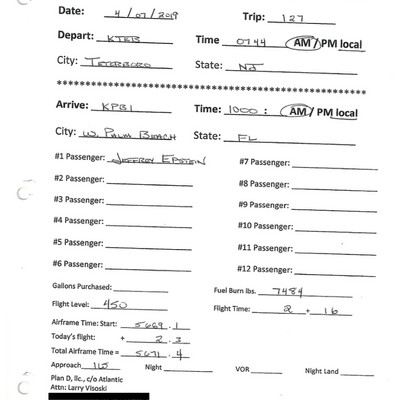 Date: 4/07/2019 Trip: 127
Depart: KTEB Time 0744 AM/PM local
City: TETERBORO State: NJ
Arrive: KPBI Time: 1000 : AM/PM local
City: W. PALM BEACH State: FL
#1 Passenger: JEFFREY EPSTEIN #7 Passenger:
#2 Passenger: #8 Passenger:
#3 Passenger: #9 Passenger:
#4 Passenger: #10 Passenger:
#5 Passenger: #11 Passenger:
#6 Passenger: #12 Passenger:
Gallons Purchased: Fuel Burn lbs. 7484
Flight Level: 450 Flight Time: 2 + 16
Airframe Time: Start: 5669.1
Today's flight: + 2.3
Total Airframe Time = 5671.4
Approach 115 Night VOR Night Land
Plan D, llc., c/o Atlantic
Attn: Larry Visoski